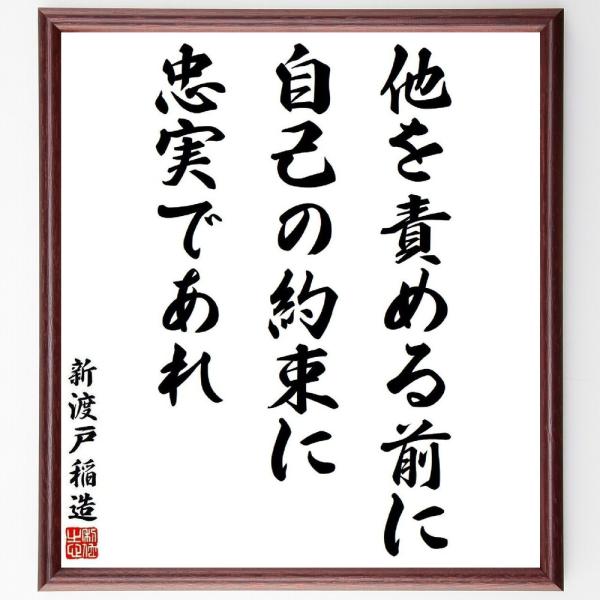 他を責める前に
自己の約束に
忠実であれ
新渡戸稲造